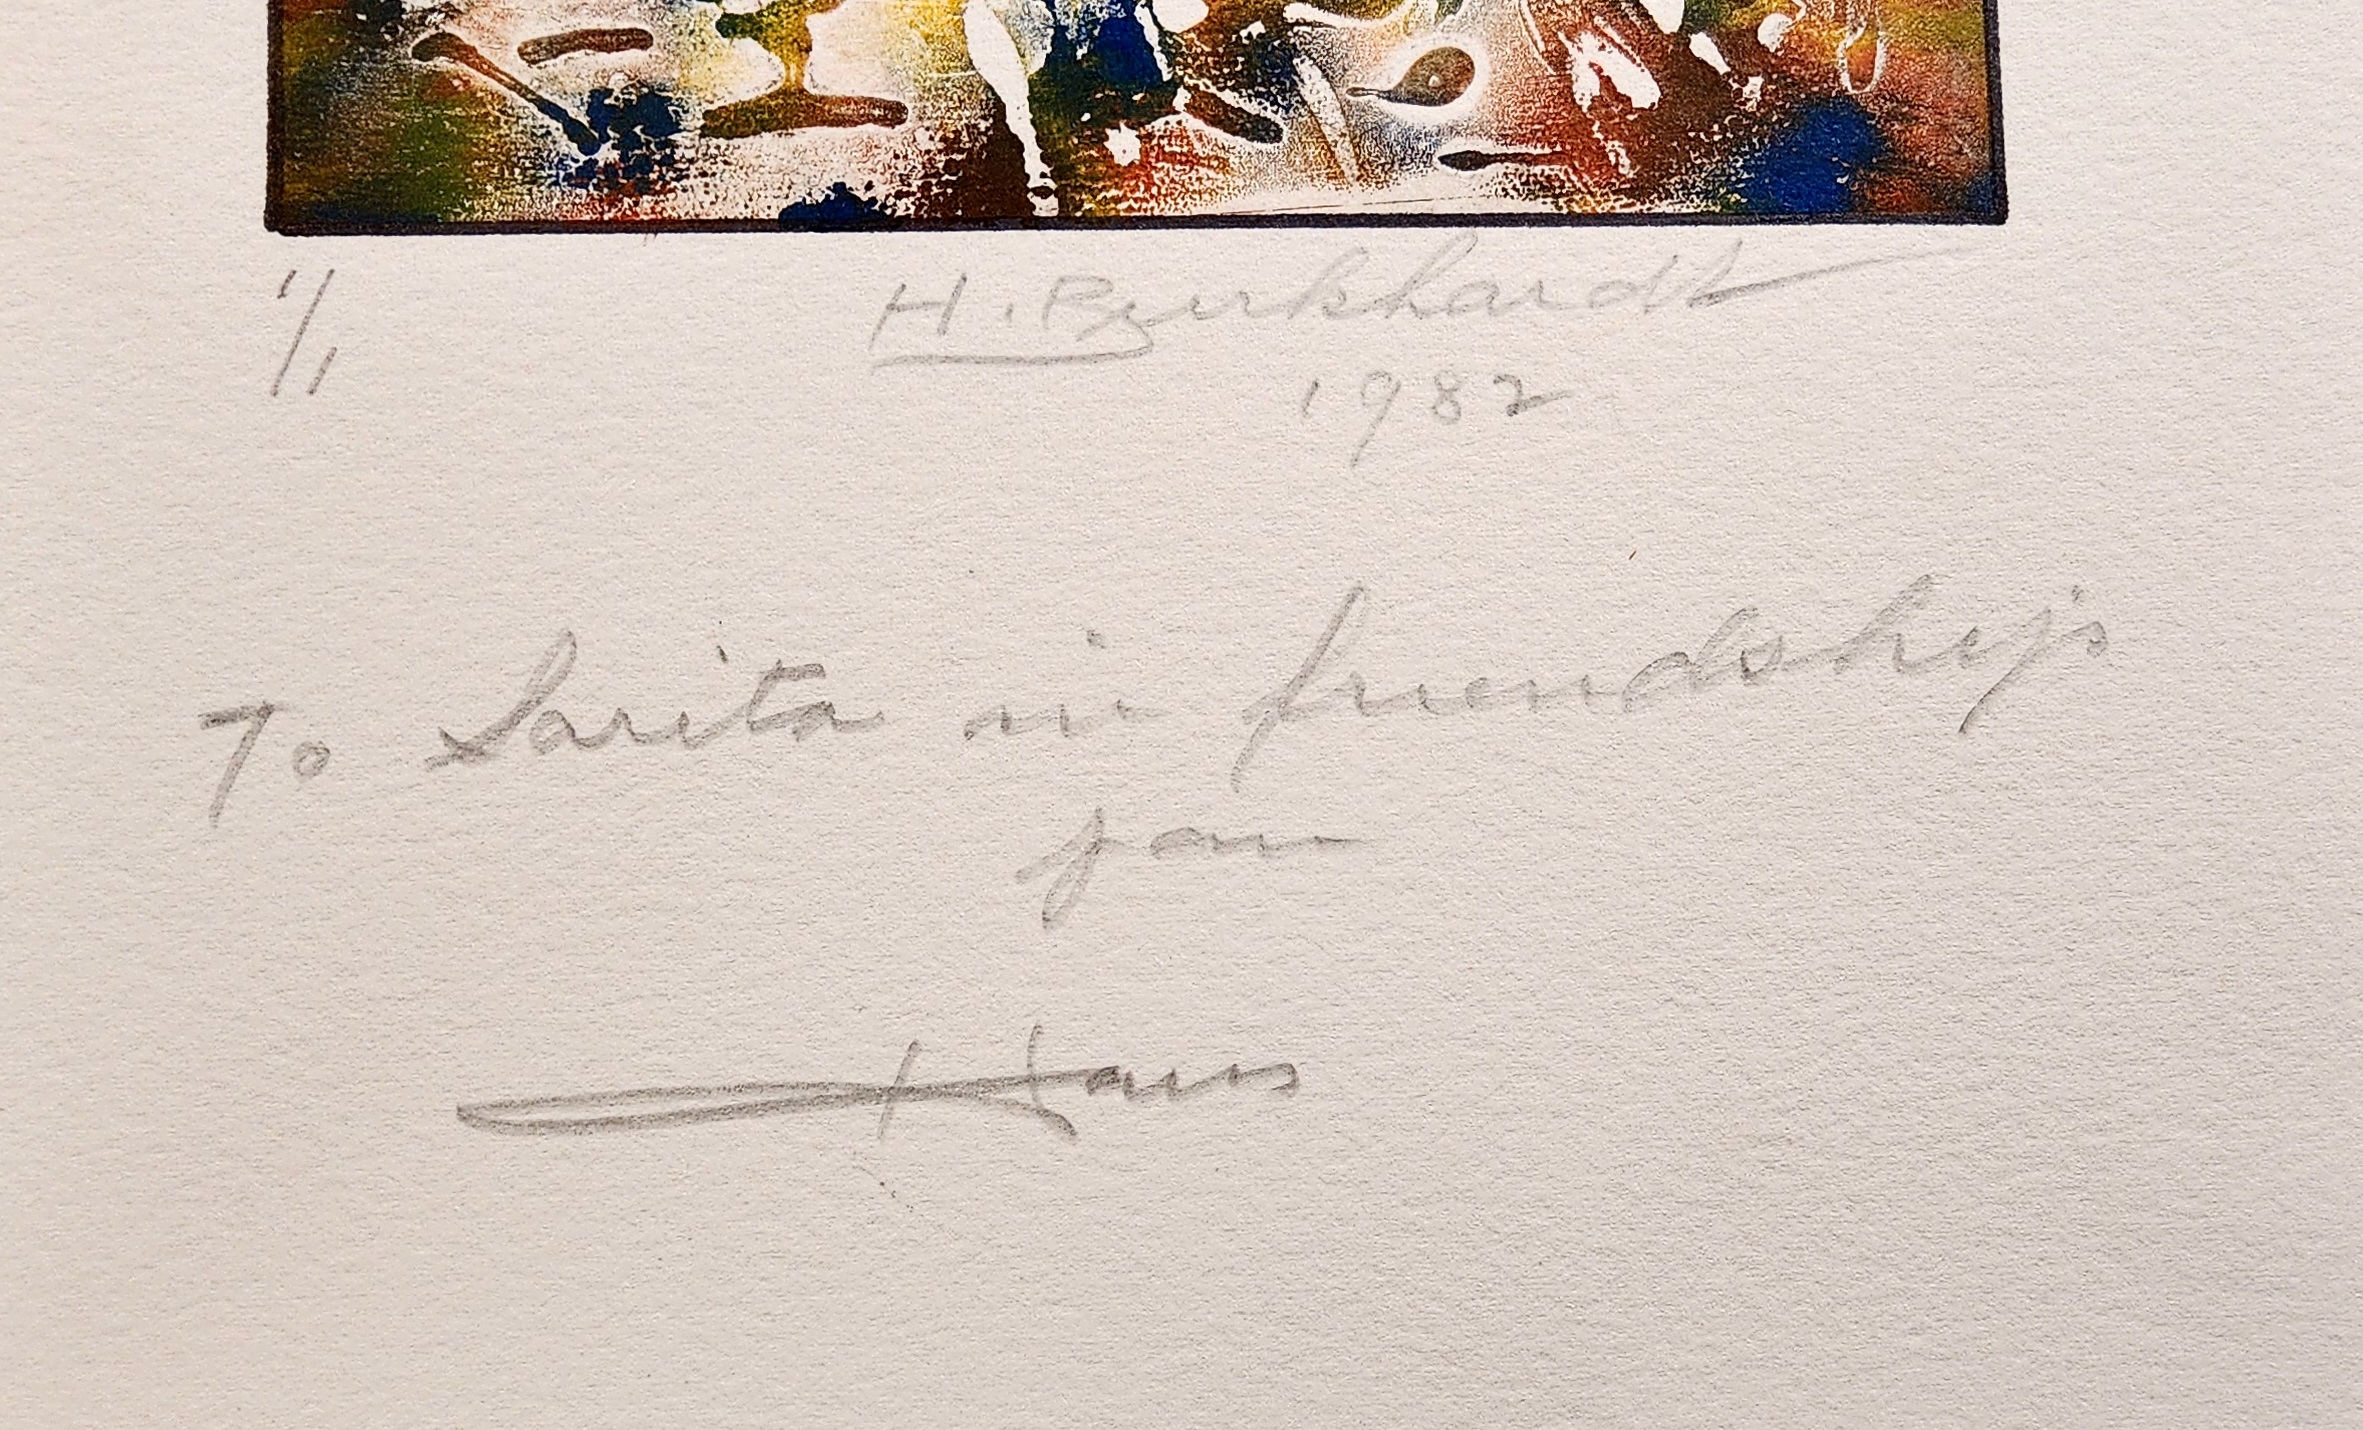 1/1
H. Burkhardt
1982
To Sarita in friendship
Hans